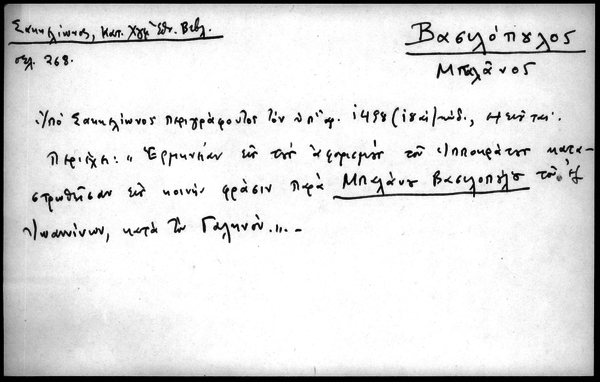 Σακκελίωνος, Κατ. Χγφ Ἐθν. Βιβλ.
σελ. 268.
Βασιλόπουλος
Μπαλᾶνος
Ὑπό Σακκελίωνος περιγράφοντος τόν ὑπ' ἀρ. 1498 (18 αἰ) κώδ., σημειοῦται:
Περιέχει: "Ἑρμηνείαν εἰς τούς ἀφορισμούς τοῦ Ἱπποκράτους κατα-
στρωθεῖσαν εἰς κοινήν φράσιν παρά Μπαλάνου Βασιλοπούλου τοῦ ἐξ
Ἰωαννίνων, κατά τόν Γαληνόν...".-